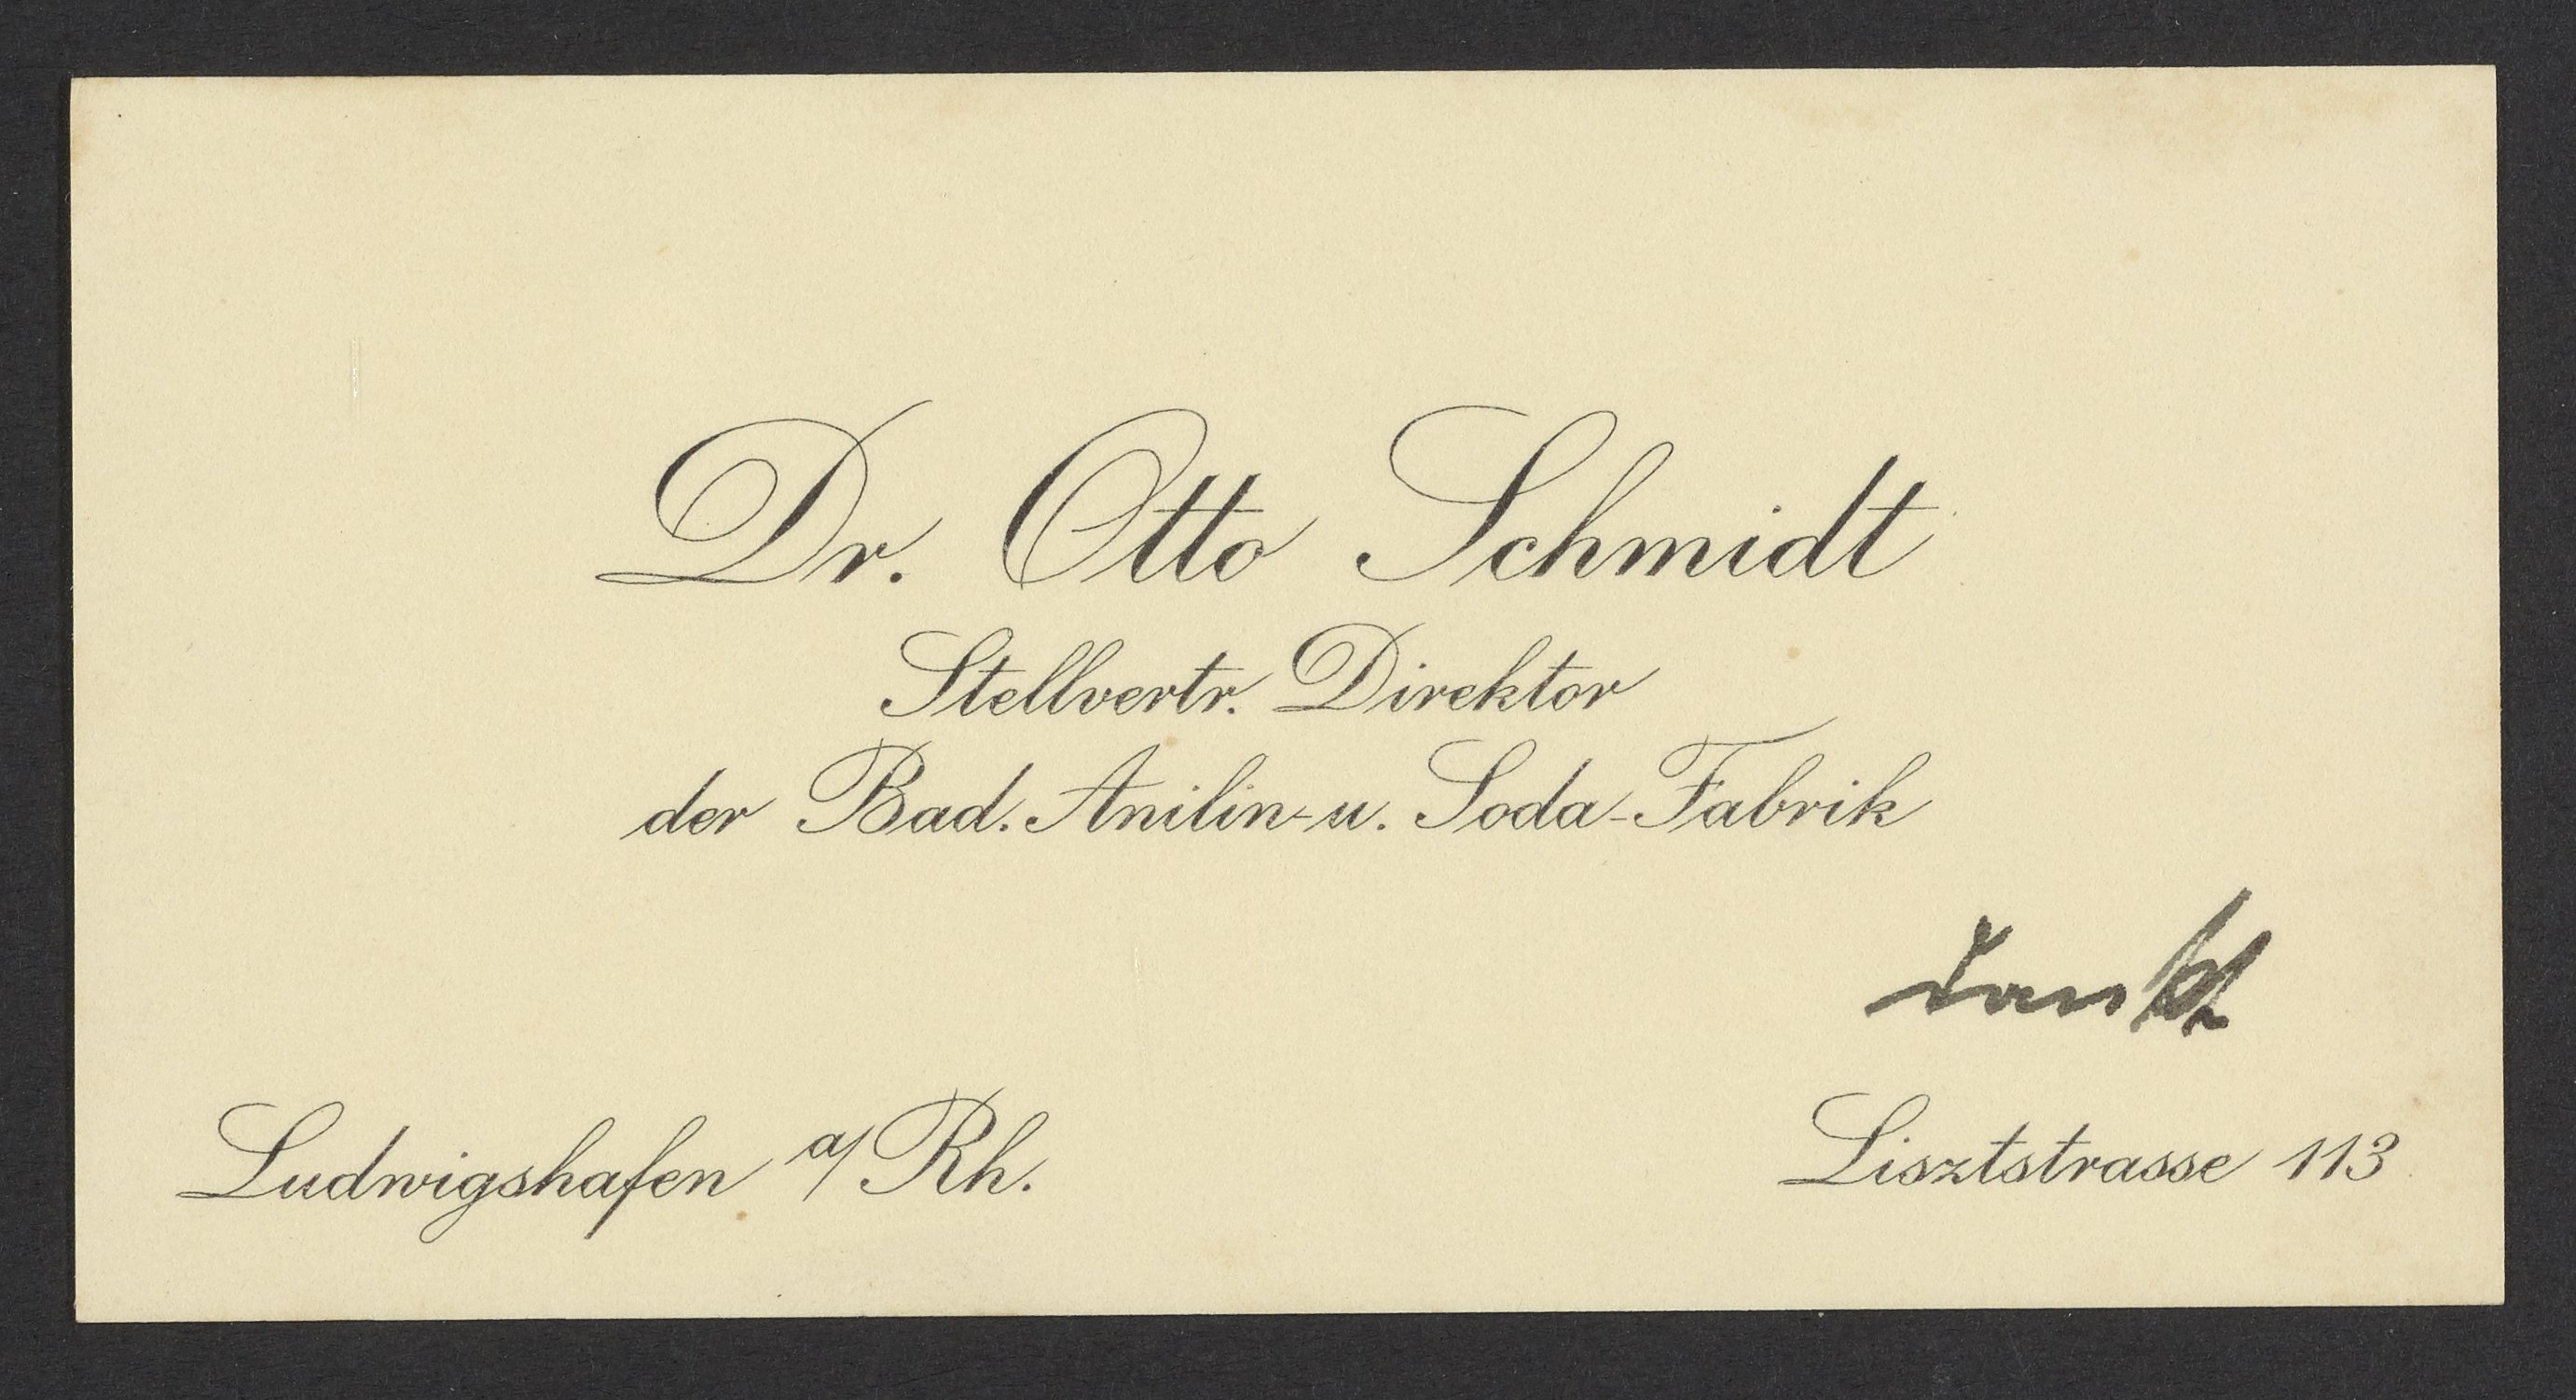 Dr. Otto Schmidt
Stellvertr. Direktor
der Bad. Anilin- u. Soda-Fabrik
dankt
Ludwigshafen a/Rh.
Lisztstrasse 113